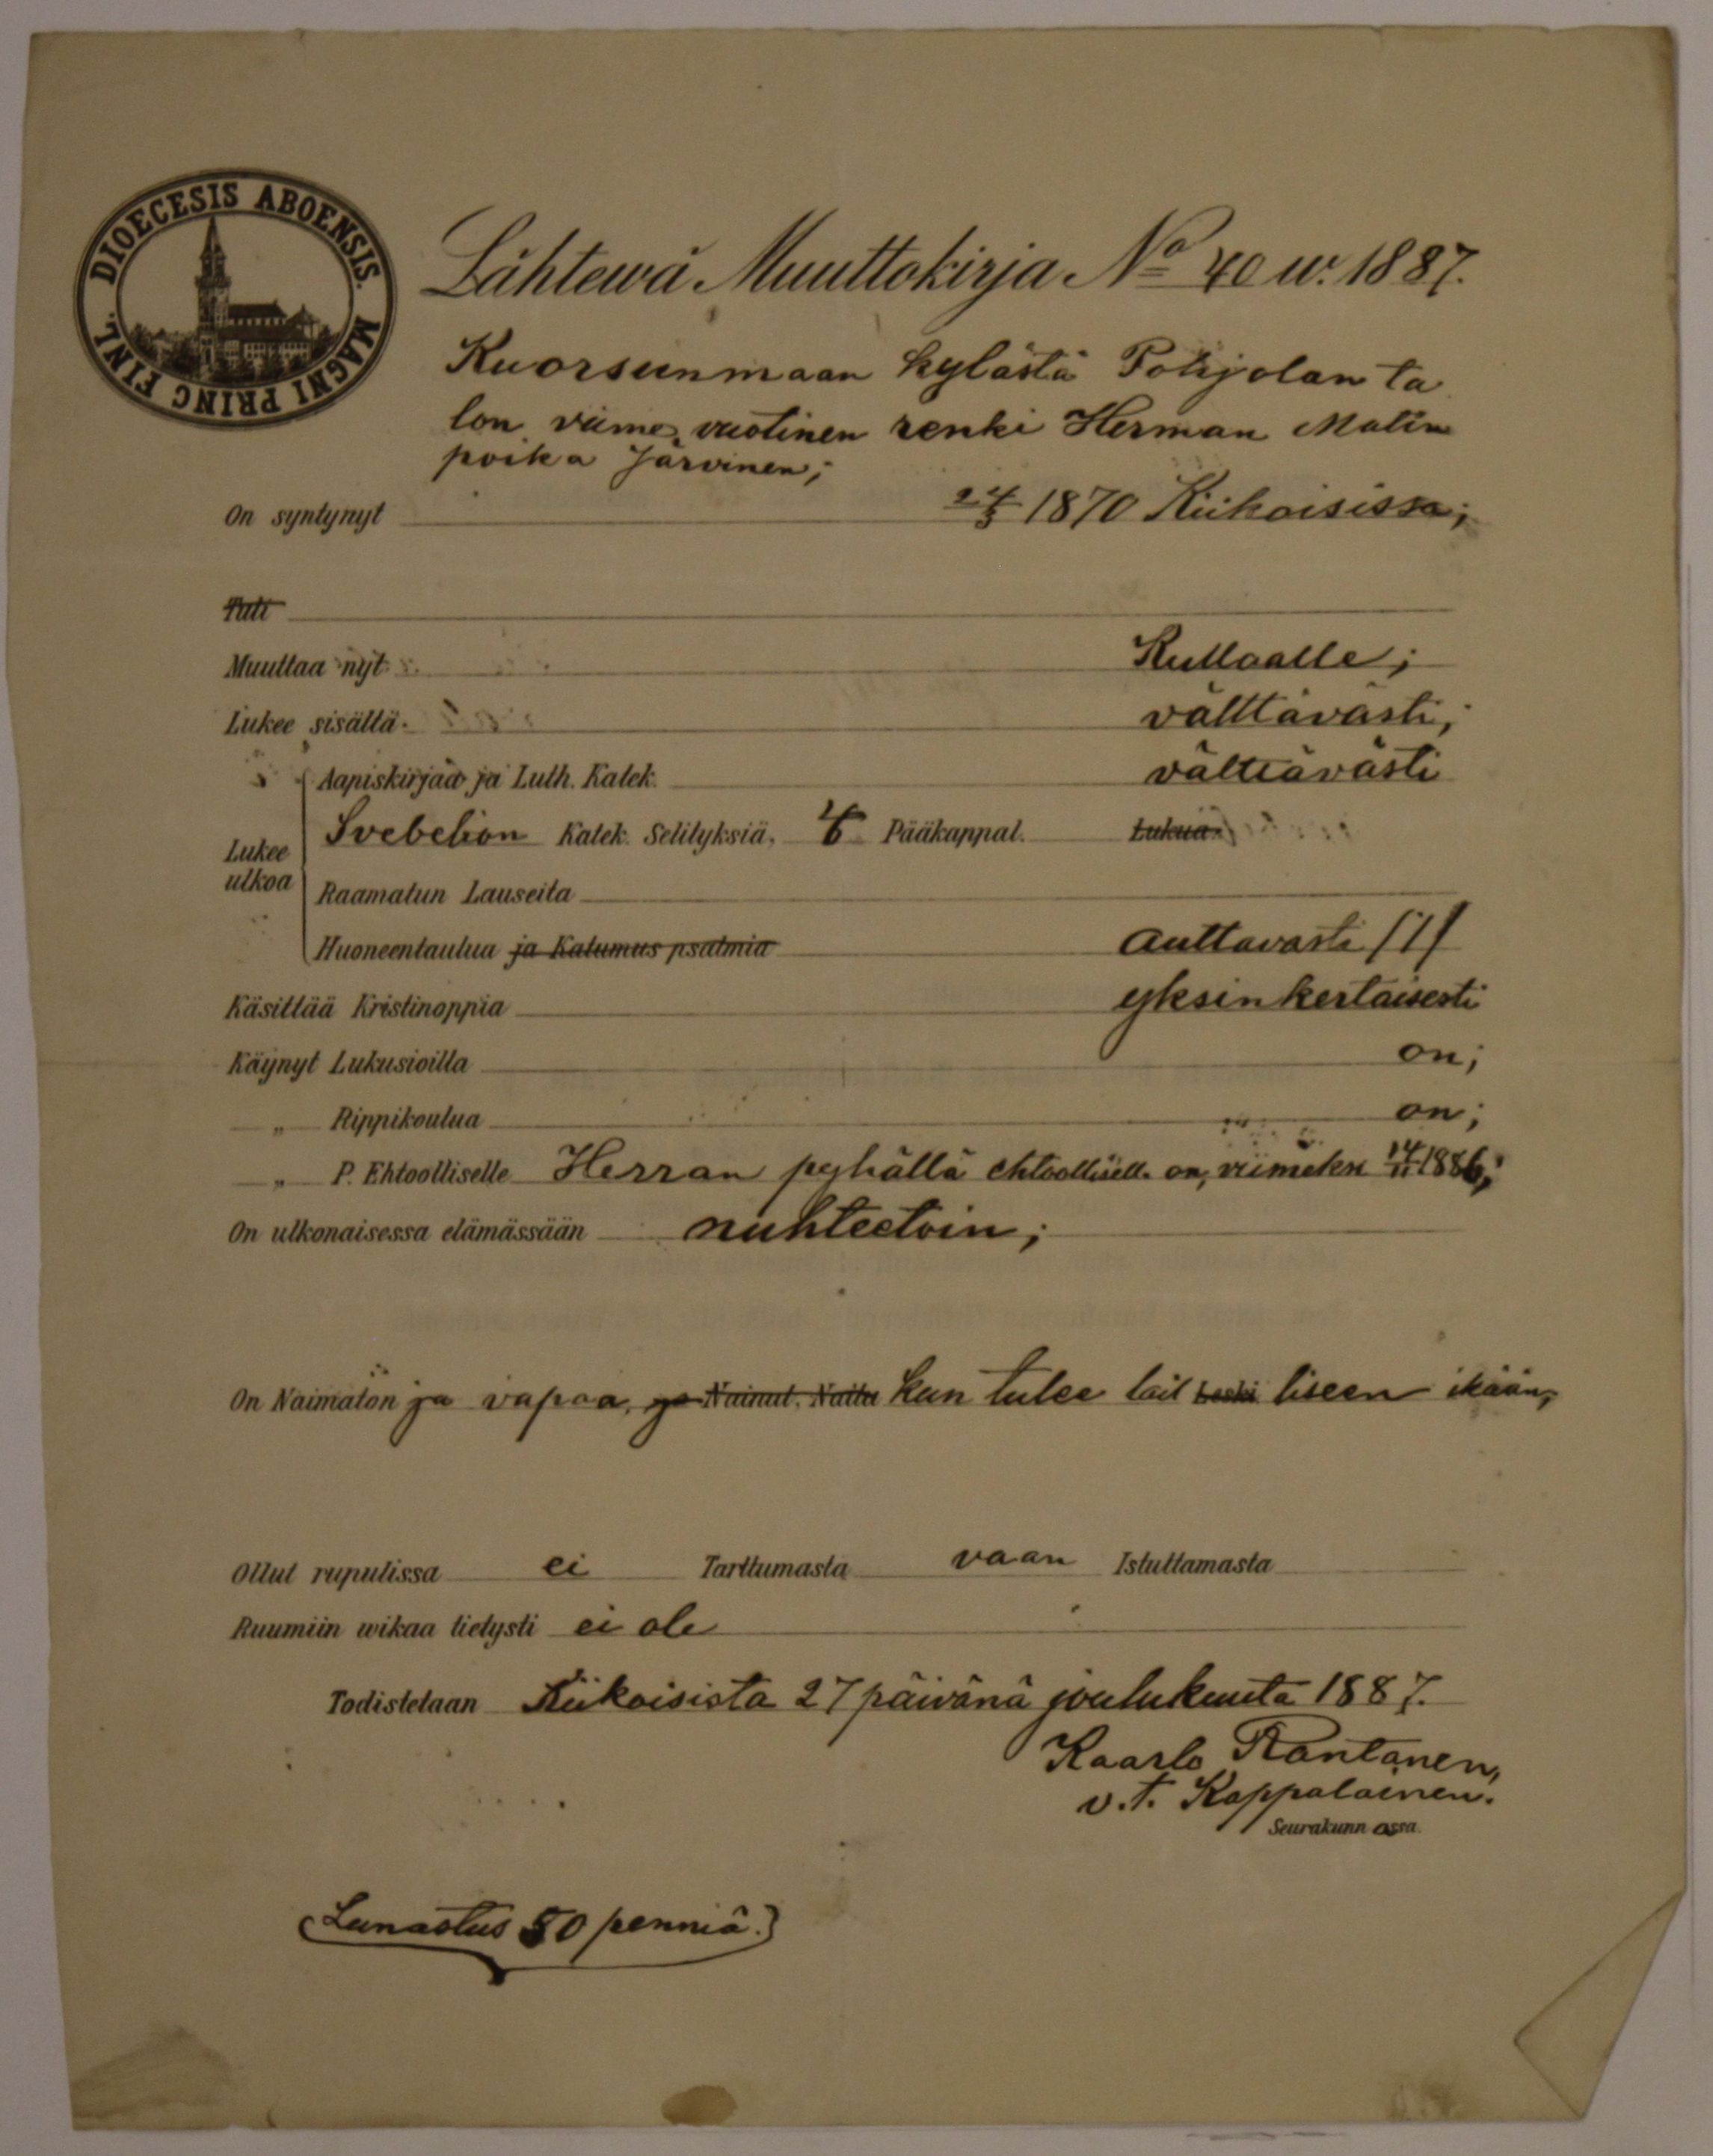 DIOECESIS ABOENSIS. MAGNI PRINC FINL.
Lähtewä Muuttokirja No 40 w. 1887.
Kuorsunmaan kylästä Pohjolan ta
lon viime vuotinen renki Herman Matin
poika Järvinen;
On syntynyt 24/3 1870 Kiikoisissa;
Tuli
Muuttaa nyt Kullaalle;
Lukee sisältä välttävästi;
Aapiskirjaa ja Luth. Katek. välttävästi
Lukee ulkoa
Svebelion Katek. Selityksiä, Pääkappal. Lukua
Raamatun Lauseita
Huoneentaulua ja Katumus psalmia auttavasti /1/
Käsittää Kristinoppia yksinkertaisesti
Käynyt Lukusioilla on;
„ Rippikoulua on;
„ P. Ehtoolliselle Herran pyhällä ehtoollisella on, viimeksi 14/11 1886;
On ulkonaisessa elämässään nuhteetoin;
On Naimaton ja vapaa, ja Nainut, Naitu kun tulee lail Leski liseen ikään;
Ollut rupulissa ei Tarttumasta vaan Istuttamasta
Ruumiin wikaa tietysti ei ole
Todistetaan Kiikoisista 27 päivänä joulukuuta 1887.
Kaarlo Rantanen,
v.t. Kappalainen.
Seurakunn assa.
(Lunastus 50 penniä.)